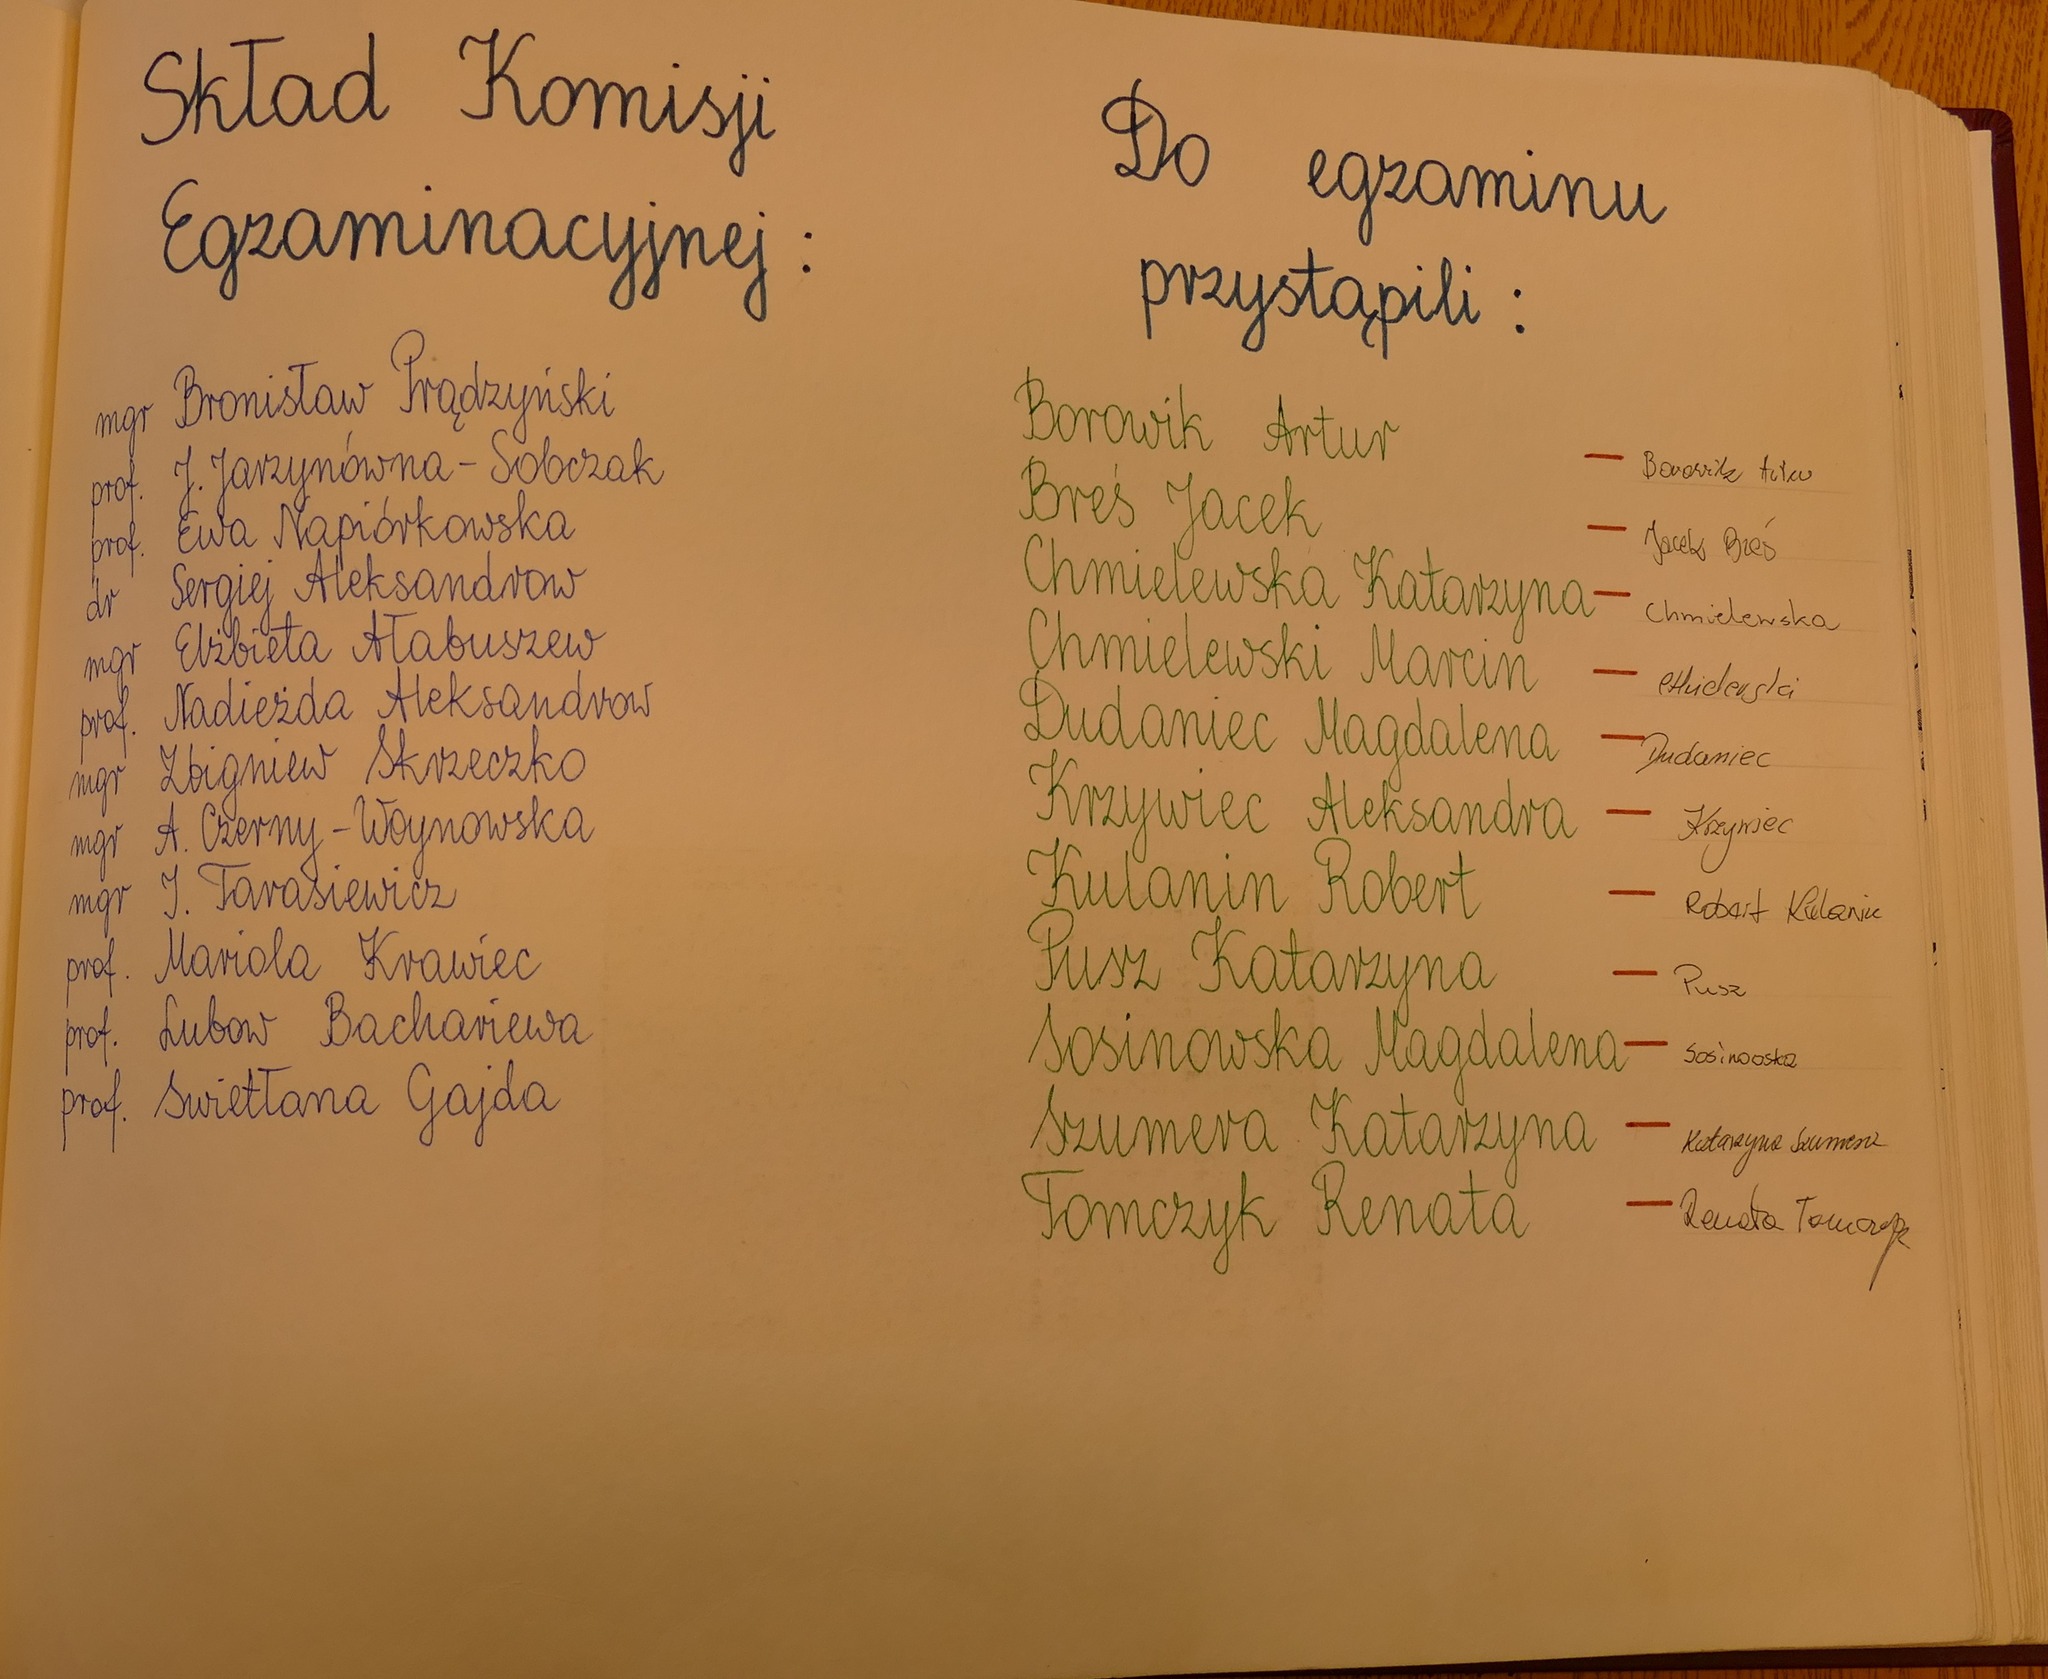 Skład Komisji
Egzaminacyjnej:
mgr Bronisław Prądzyński
prof. J. Jarzynówna-Sobczak
prof. Ewa Napiórkowska
dr Sergiej Aleksandrow
mgr Elżbieta Ałabuszew
prof. Nadieżda Aleksandrow
mgr Zbigniew Skrzeczko
mgr A. Czerny-Woynowska
mgr J. Tarasiewicz
prof. Mariola Krawiec
prof. Lubow Bachariewa
prof. Swietłana Gajda
Do egzaminu
przystąpili:
Borowik Artur — Borowik
Breś Jacek — Jacek Breś
Chmielewska Katarzyna — Chmielewska
Chmielewski Marcin —
Dudaniec Magdalena — Dudaniec
Krzywiec Aleksandra — Krzywiec
Kulanin Robert — Robert Kulanin
Pusz Katarzyna — Pusz
Sosinowska Magdalena — Sosinowska
Szumera Katarzyna — Katarzyna Szumera
Tomczyk Renata — Renata Tomczyk